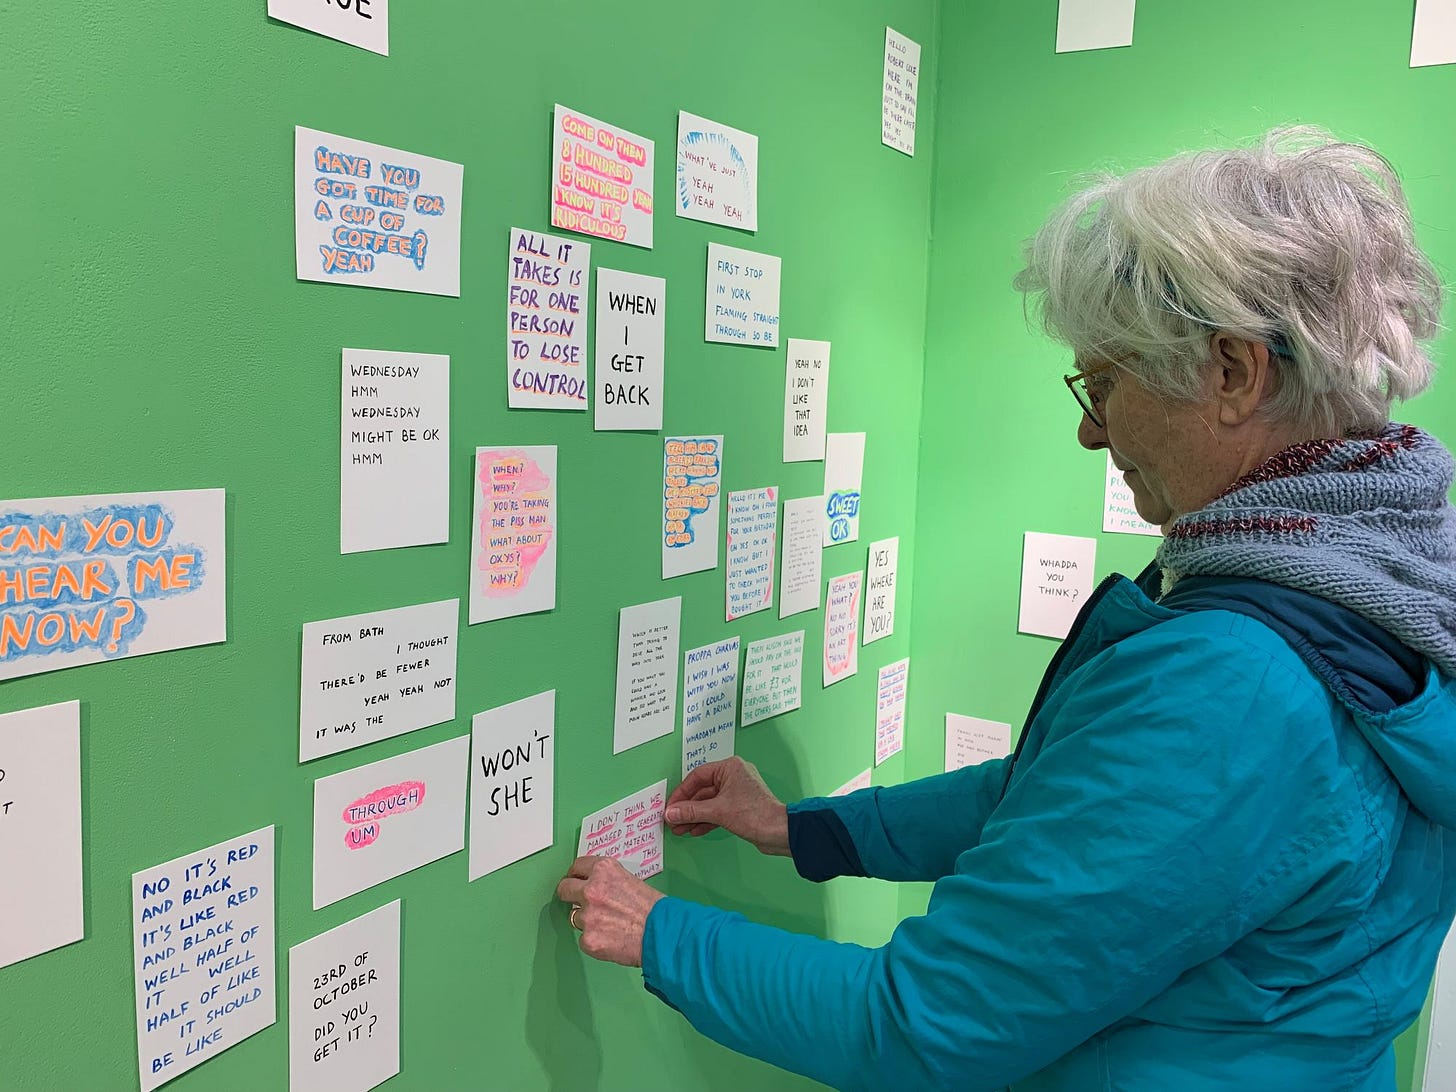 HELLO
HERE I'M
HAVE YOU
GOT TIME FOR
A CUP OF
COFFEE?
YEAH
COME ON THEN
8 HUNDRED
15 HUNDRED YEAH
I KNOW IT'S
RIDICULOUS
WHAT'VE JUST
YEAH
YEAH YEAH
ALL IT
TAKES IS
FOR ONE
PERSON
TO LOSE
CONTROL
WHEN
I
GET
BACK
FIRST STOP
IN YORK
FLAMING STRAIGHT
THROUGH SO BE
YEAH NO
I DON'T
LIKE
THAT
IDEA
WEDNESDAY
HMM
WEDNESDAY
MIGHT BE OK
HMM
WHEN?
WHY?
YOU'RE TAKING
THE PISS MAN
WHAT ABOUT
OXYS?
WHY?
HELLO IT'S ME
I KNOW OH I FOUND
SOMETHING PERFECT
FOR YOUR BIRTHDAY
OH YES OK OK
I KNOW BUT I
JUST WANTED
TO CHECK WITH
YOU BEFORE I
BOUGHT IT
SWEET
OK
YES
WHERE
ARE
YOU?
YEAH YOU
WHAT?
NO NO
SORRY IT'S
AN ART
THING
YOU
KNOW
I MEAN
WHADDA
YOU
THINK?
CAN YOU
HEAR ME
NOW?
FROM BATH
I THOUGHT
THERE'D BE FEWER
YEAH YEAH NOT
IT WAS THE
WHICH IS BETTER
THAN TRYING TO
DRIVE ALL THE
WAY INTO YORK
IF YOU WANT YOU
COULD
PROPPA CHARVAS
I WISH I WAS
WITH YOU NOW
COS I COULD
HAVE A DRINK
WHADDAYA MEAN
THAT'S SO
UNFAIR
THEN ALISON SAID WE
SHOULD PAY
FOR IT THAT WOULD
BE LIKE £3 FOR
EVERYONE BUT THEN
THE OTHERS SAID THEY
WON'T
SHE
THROUGH
UM
I DON'T THINK WE
MANAGED TO GENERATE
NEW MATERIAL
THIS
ANYWAY
NO IT'S RED
AND BLACK
IT'S LIKE RED
AND BLACK
WELL HALF OF
IT WELL
HALF OF LIKE
IT SHOULD
BE LIKE
23RD OF
OCTOBER
DID YOU
GET IT?